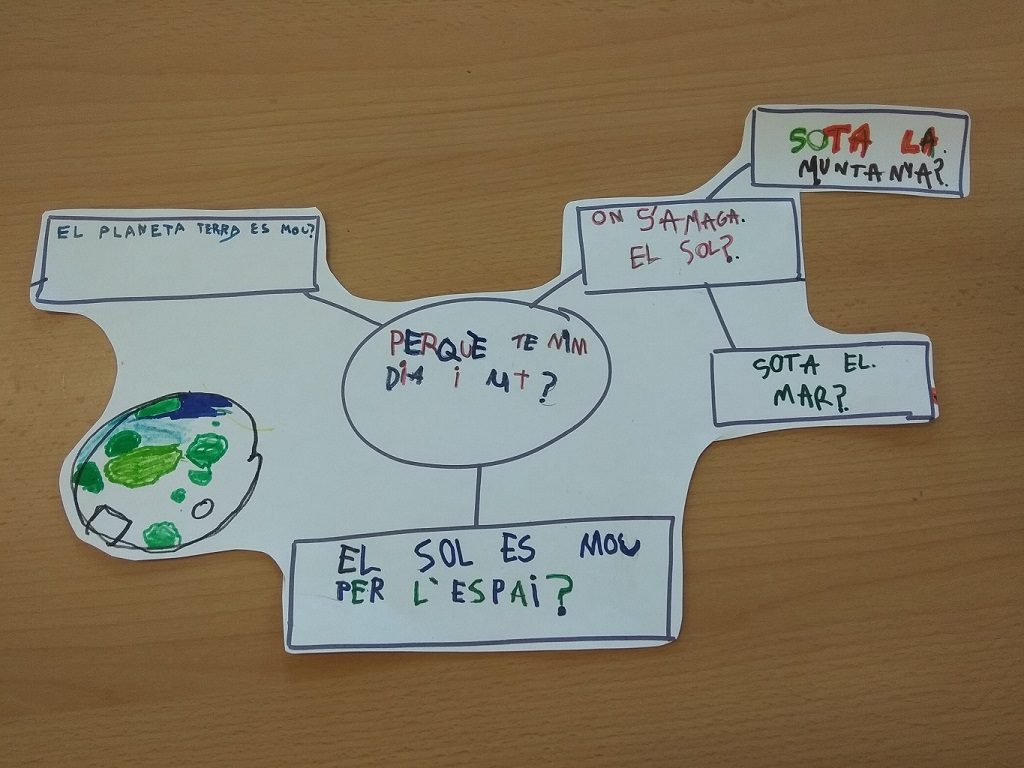 SOTA LA.
MUNTANYA?
ON S'AMAGA.
EL SOL?
EL PLANETA TERRA ES MOU?
PERQUE TENIM
DIA I NIT?
SOTA EL.
MAR?
EL SOL ES MOU
PER L'ESPAI?